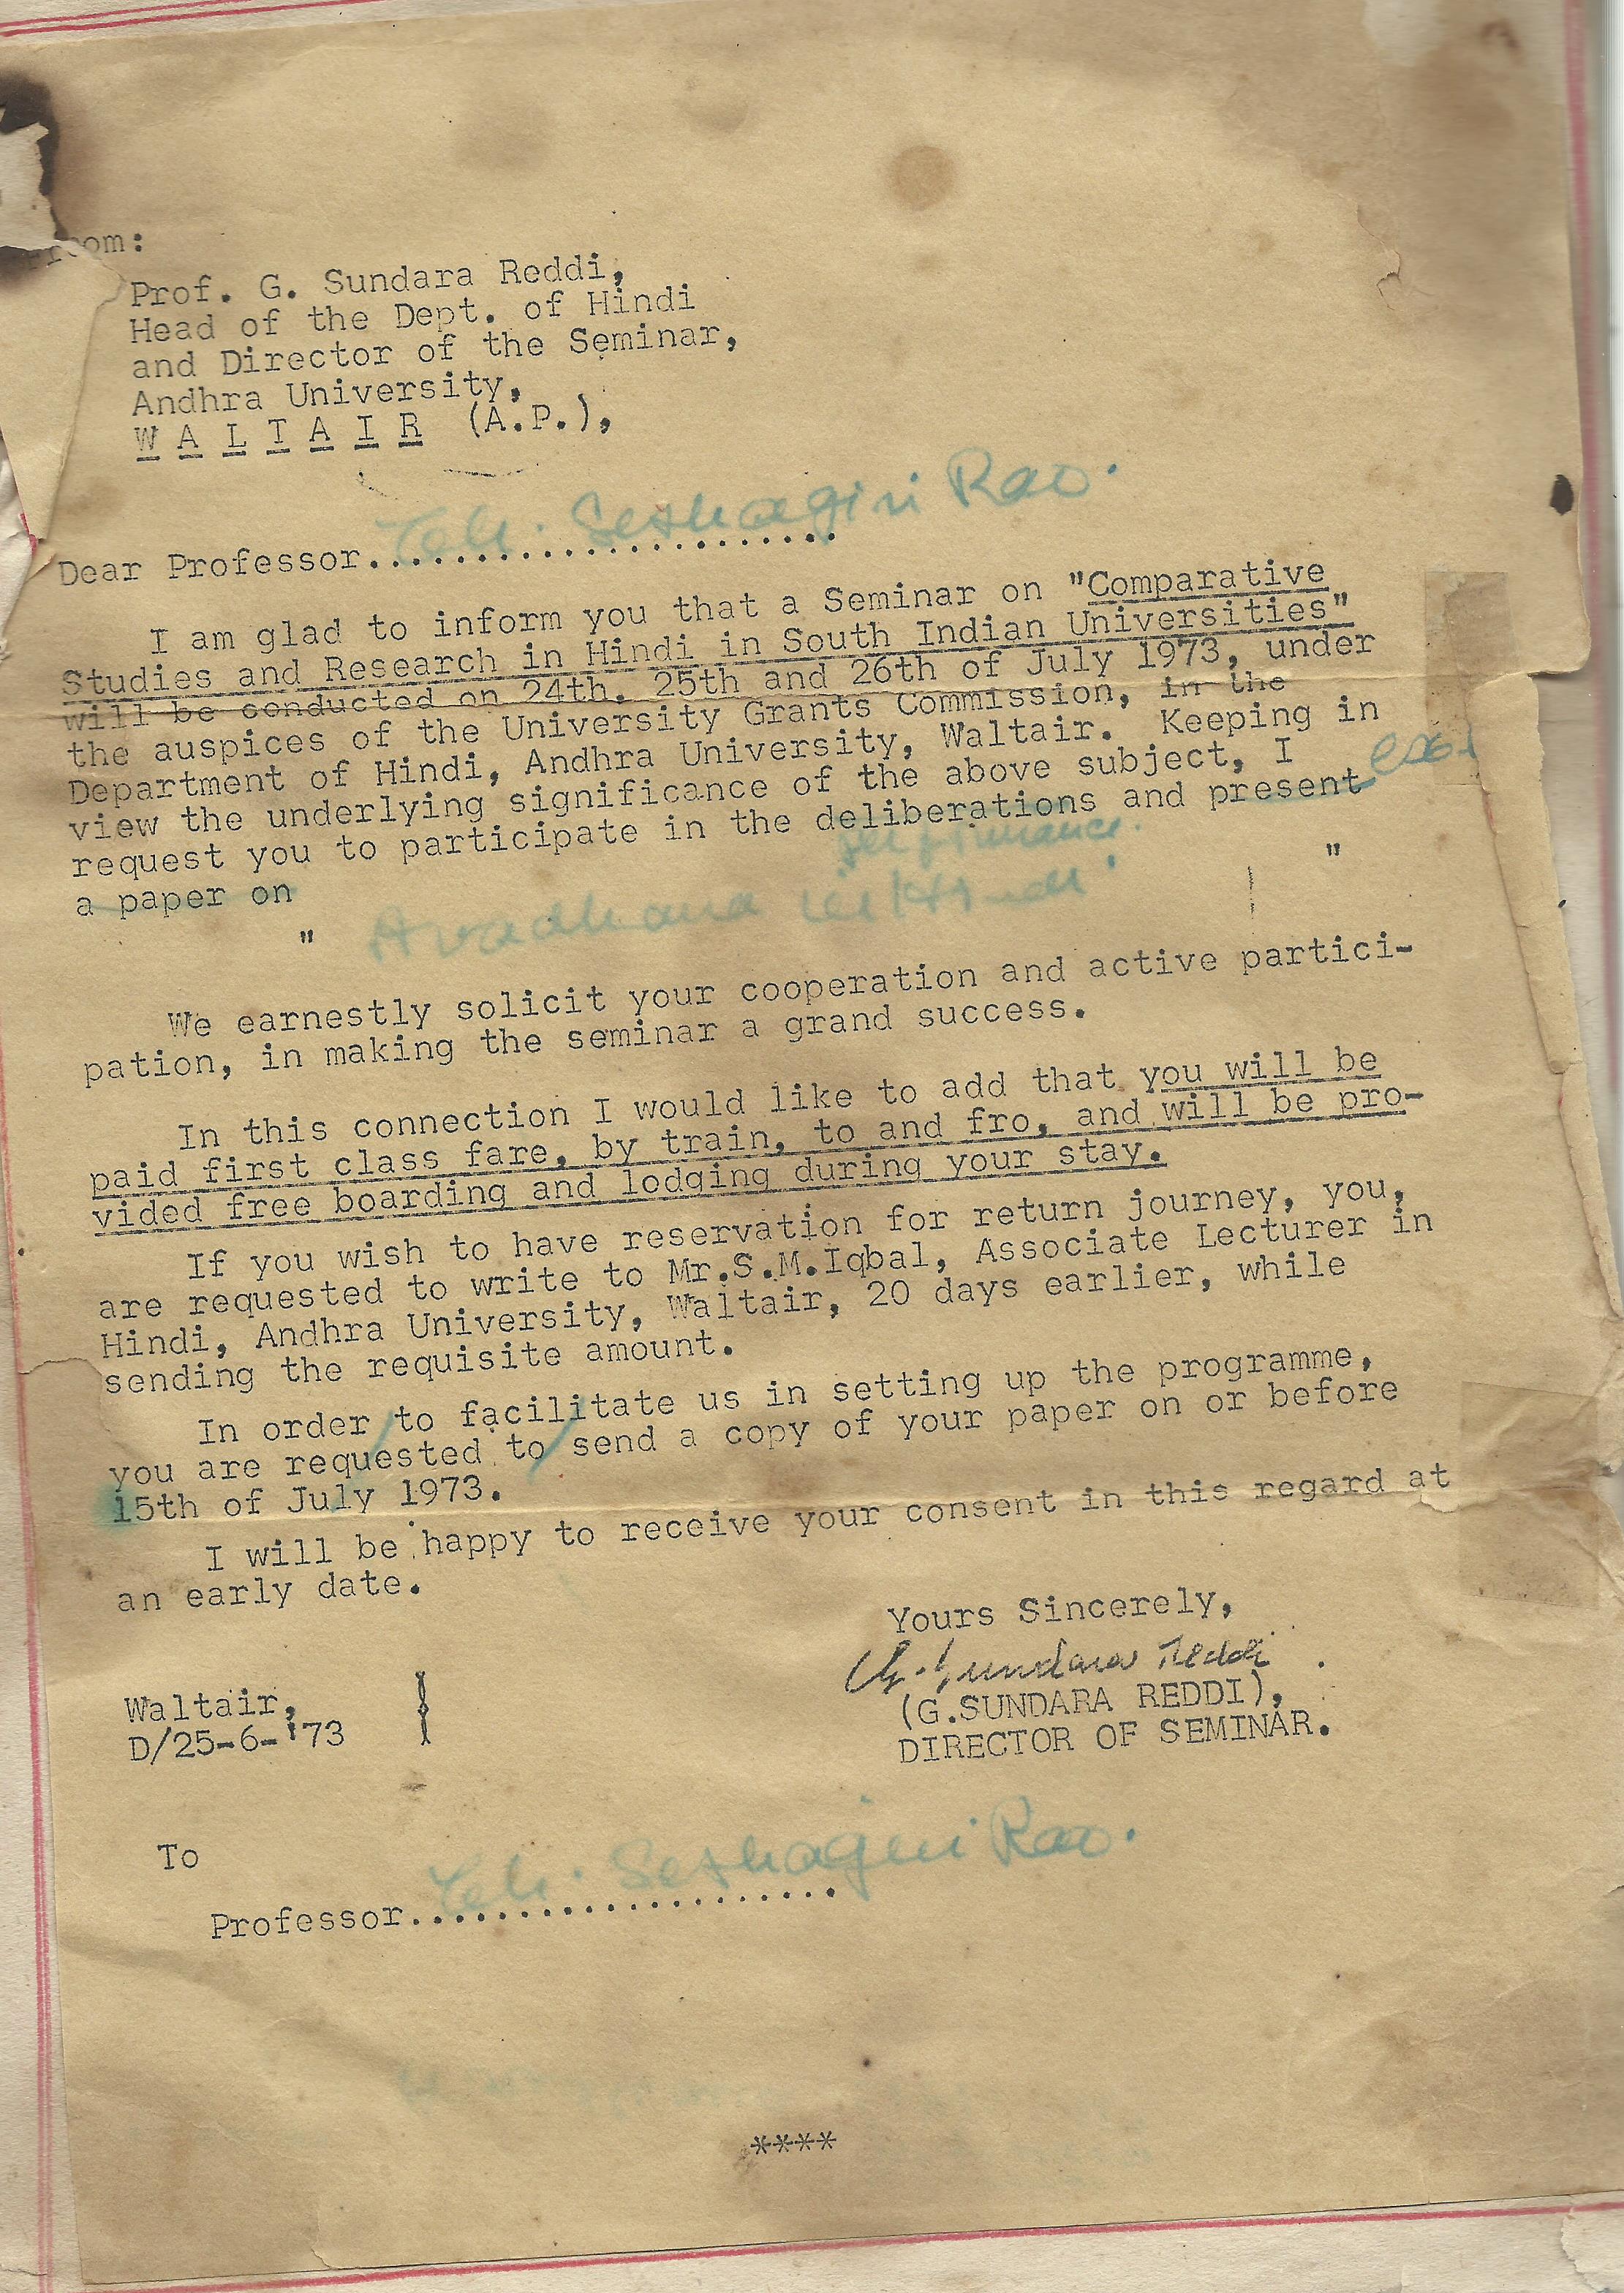 From:
Prof. G. Sundara Reddi,
Head of the Dept. of Hindi
and Director of the Seminar,
Andhra University,
W A L T A I R (A.P.),
Seshagiri Rao.
Dear Professor......................
I am glad to inform you that a Seminar on "Comparative
Studies and Research in Hindi in South Indian Universities"
will be conducted on 24th, 25th and 26th of July 1973, under
the auspices of the University Grants Commission, in the
Department of Hindi, Andhra University, Waltair. Keeping in
view the underlying significance of the above subject, I
request you to participate in the deliberations and present
performance.
a paper on "
" Avadhana in Hindi
We earnestly solicit your cooperation and active partici-
pation, in making the seminar a grand success.
In this connection I would like to add that you will be
paid first class fare, by train, to and fro, and will be pro-
vided free boarding and lodging during your stay.
If you wish to have reservation for return journey, you,
are requested to write to Mr.S.M.Iqbal, Associate Lecturer in
Hindi, Andhra University, Waltair, 20 days earlier, while
sending the requisite amount.
In order to facilitate us in setting up the programme,
you are requested to send a copy of your paper on or before
15th of July 1973.
I will be happy to receive your consent in this regard at
an early date.
Yours Sincerely,
G. Sundara Reddi
(G.SUNDARA REDDI),
DIRECTOR OF SEMINAR.
Waltair,
D/25-6-'73
To
Seshagiri Rao.
Professor....................
****